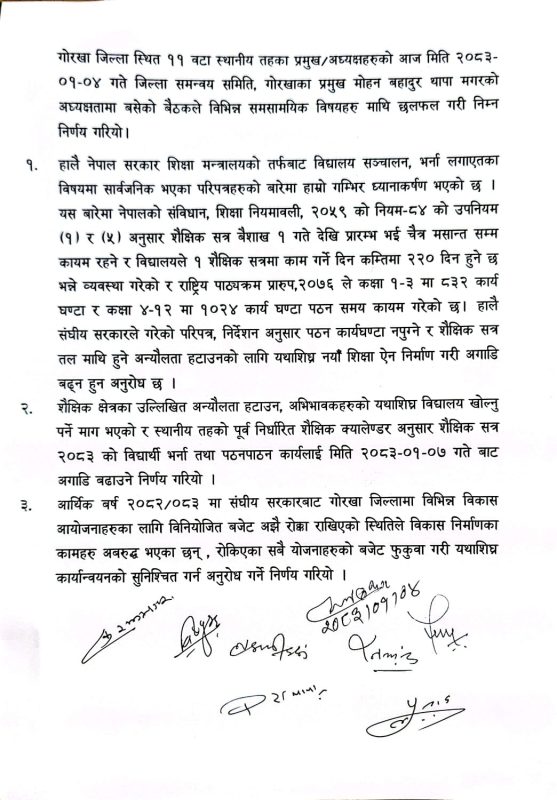 गोरखा जिल्ला स्थित ११ वटा स्थानीय तहका प्रमुख/अध्यक्षहरुको आज मिति २०८३-
०१-०४ गते जिल्ला समन्वय समिति, गोरखाका प्रमुख मोहन बहादुर थापा मगरको
अध्यक्षतामा बसेको बैठकले विभिन्न समसामयिक विषयहरु माथि छलफल गरी निम्न
निर्णय गरियो।
१. हालै नेपाल सरकार शिक्षा मन्त्रालयको तर्फबाट विद्यालय सञ्चालन, भर्ना लगाएतका
विषयमा सार्वजनिक भएका परिपत्रहरुको बारेमा हाम्रो गम्भिर ध्यानाकर्षण भएको छ ।
यस बारेमा नेपालको संविधान, शिक्षा नियमावली, २०५९ को नियम-८४ को उपनियम
(१) र (५) अनुसार शैक्षिक सत्र बैशाख १ गते देखि प्रारम्भ भई चैत्र मसान्त सम्म
कायम रहने र विद्यालयले १ शैक्षिक सत्रमा काम गर्ने दिन कम्तिमा २२० दिन हुने छ
भन्ने व्यवस्था गरेको र राष्ट्रिय पाठ्यक्रम प्रारुप,२०७६ ले कक्षा १-३ मा ८३२ कार्य
घण्टा र कक्षा ४-१२ मा १०२४ कार्य घण्टा पठन समय कायम गरेको छ। हालै
संघीय सरकारले गरेको परिपत्र, निर्देशन अनुसार पठन कार्यघण्टा नपुग्ने र शैक्षिक सत्र
तल माथि हुने अन्यौलता हटाउनको लागि यथाशिघ्र नयाँ शिक्षा ऐन निर्माण गरी अगाडि
बढ्न हुन अनुरोध छ ।
२. शैक्षिक क्षेत्रका उल्लिखित अन्यौलता हटाउन, अभिभावकहरुको यथाशिघ्र विद्यालय खोल्नु
पर्ने माग भएको र स्थानीय तहको पूर्व निर्धारित शैक्षिक क्यालेण्डर अनुसार शैक्षिक सत्र
२०८३ को विद्यार्थी भर्ना तथा पठनपाठन कार्यलाई मिति २०८३-०१-०७ गते बाट
अगाडि बढाउने निर्णय गरियो ।
३. आर्थिक वर्ष २०८२/०८३ मा संघीय सरकारबाट गोरखा जिल्लामा विभिन्न विकास
आयोजनाहरुका लागि विनियोजित बजेट अझै रोक्का राखिएको स्थितिले विकास निर्माणका
कामहरु अवरुद्ध भएका छन् , रोकिएका सबै योजनाहरुको बजेट फुकुवा गरी यथाशिघ्र
कार्यान्वयनको सुनिश्चित गर्न अनुरोध गर्ने निर्णय गरियो ।
२०८३।०१।०४